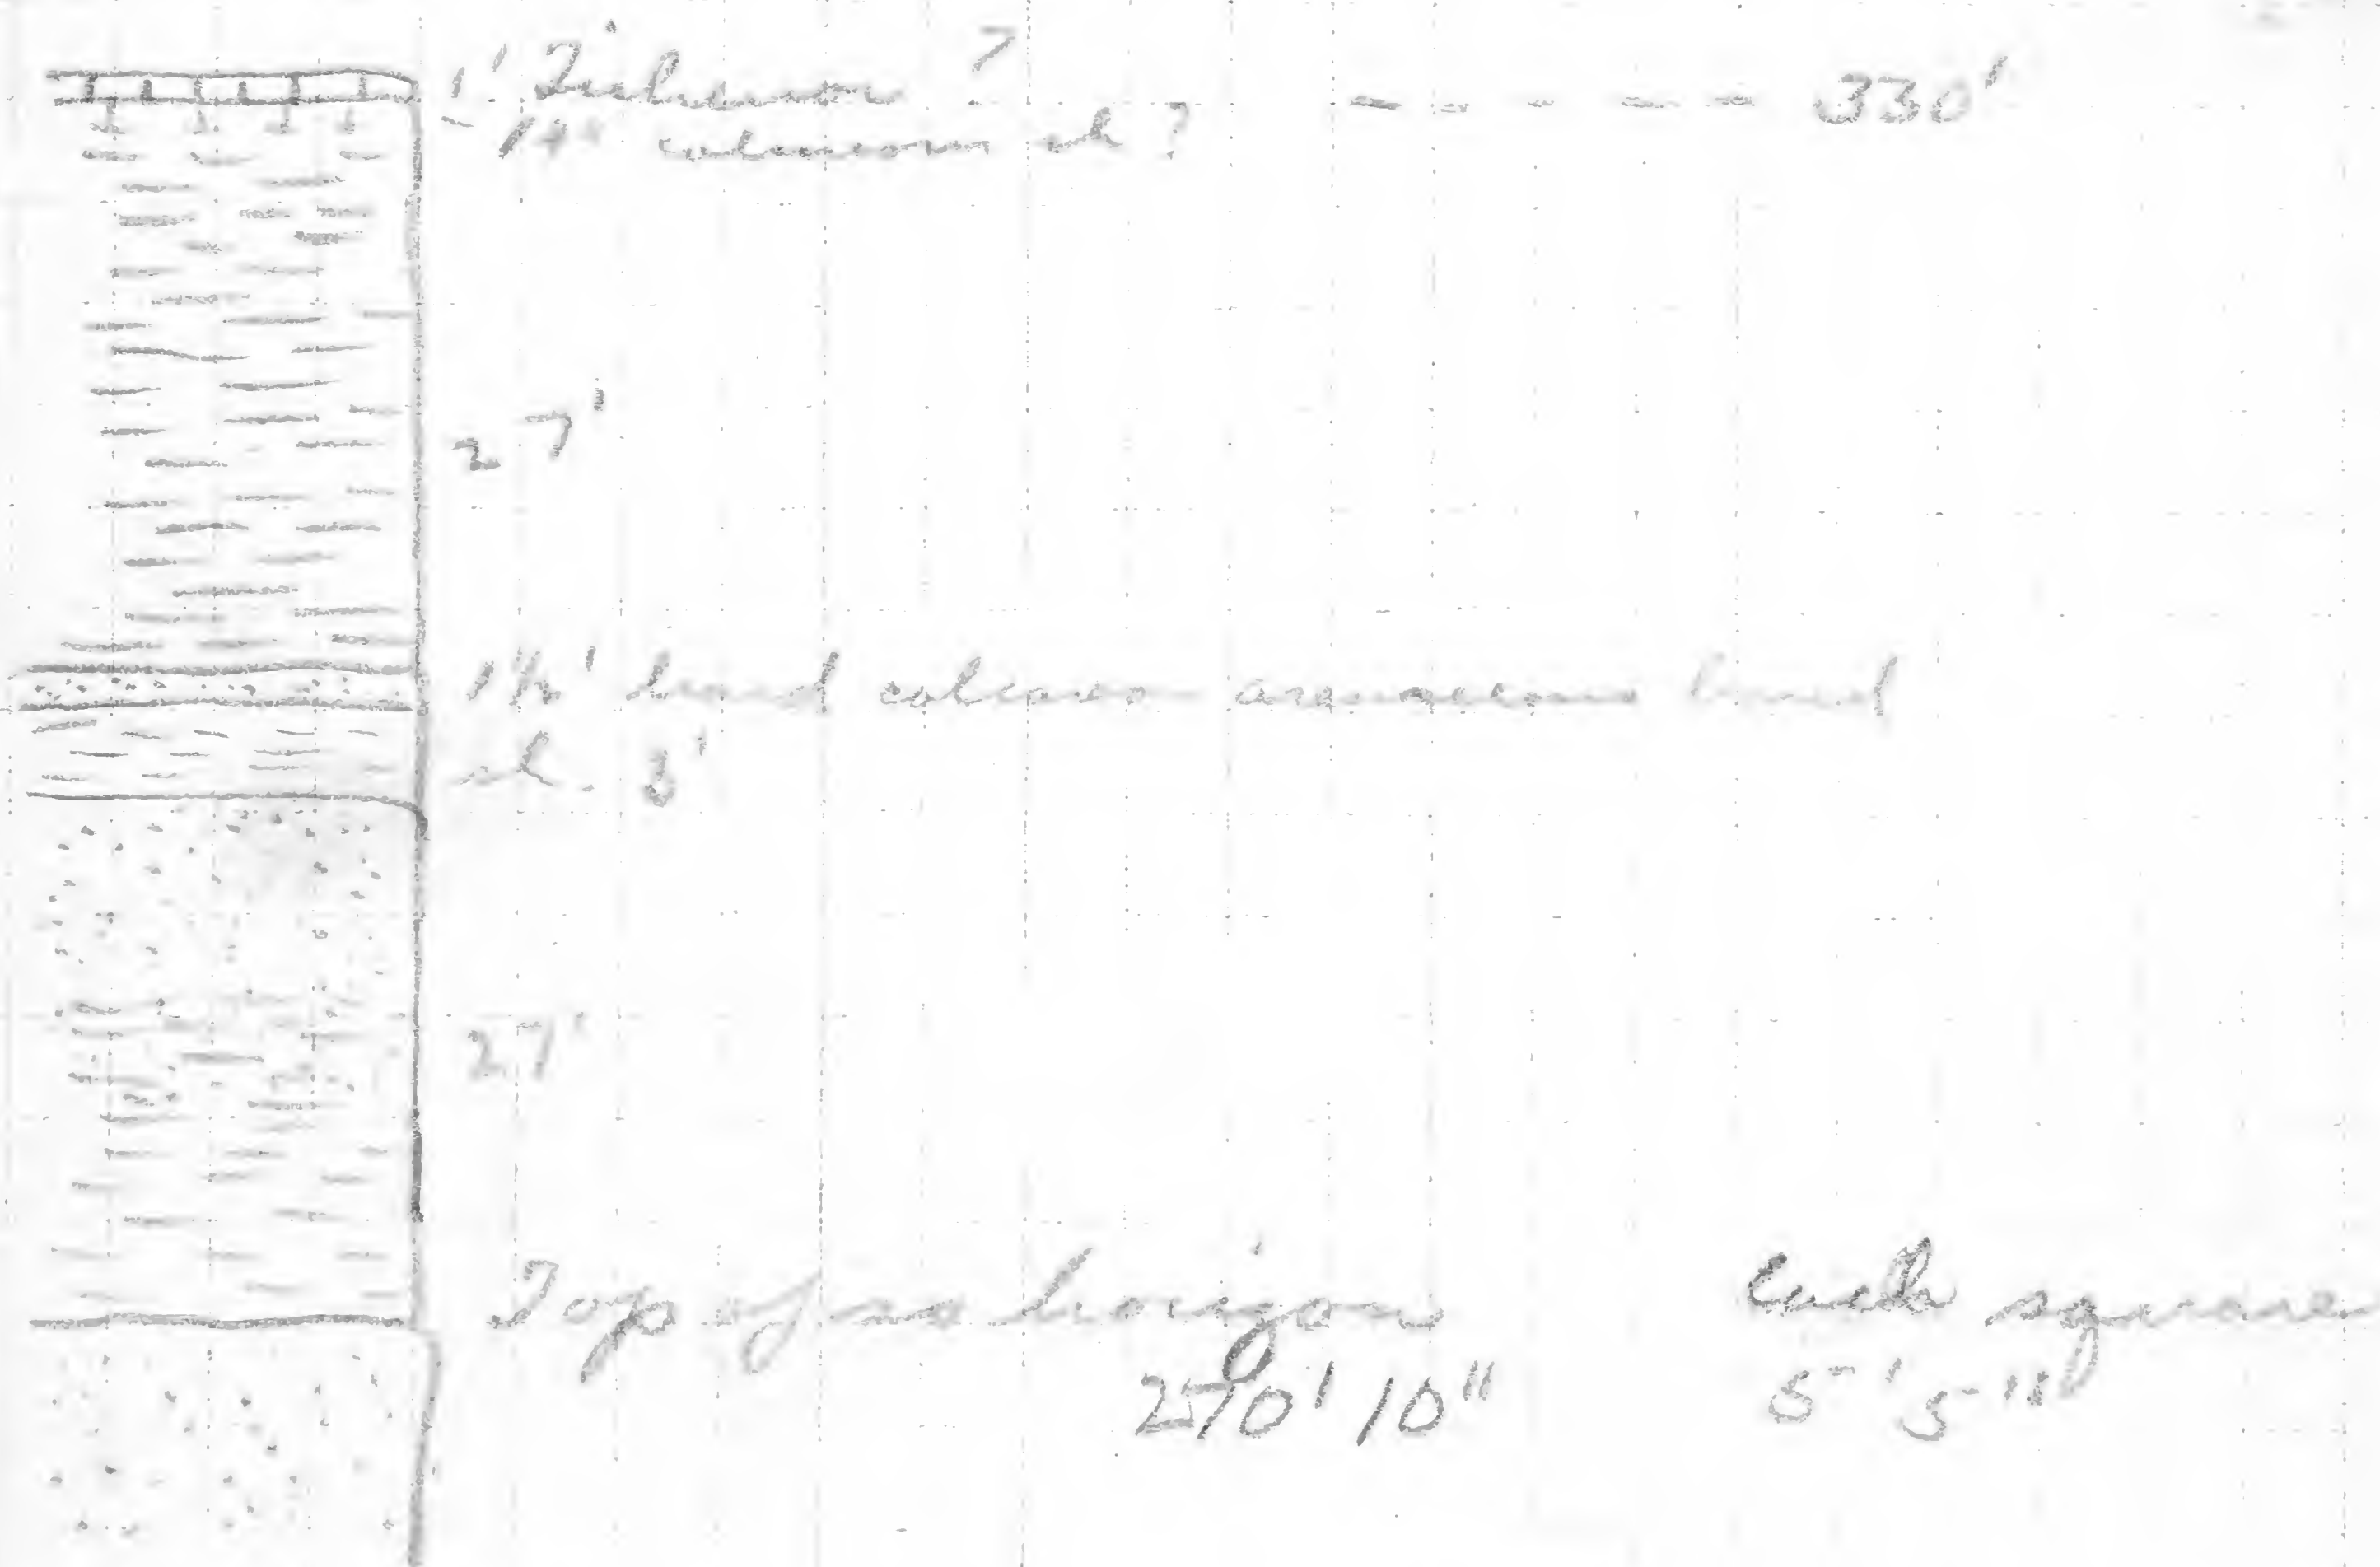 1' Tichenor ? 330'
14" calcareous sh ?
27'
1½' hard calcareo arenaceous band
sh. 8'
27'
Top of ss horizon each square
270' 10" 5' 5"